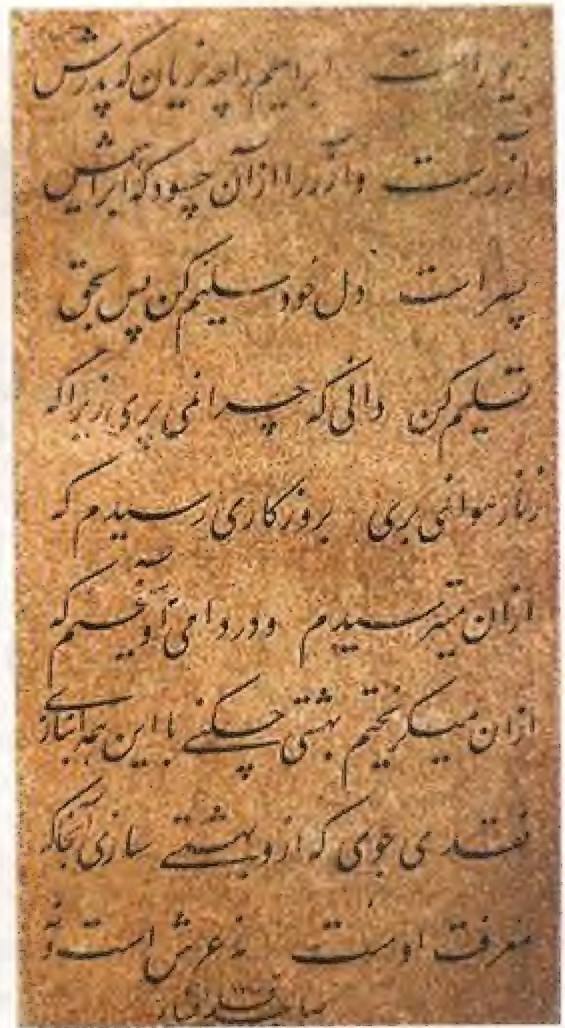 زیور است ابراهیم را چه زیان که پدرش
آزر است و آزر را از آن چه سود که ابراهیمش
پسر است دل خود سلیم کن پس بحق
تسلیم کن دانی که چرا نمی پری زیرا که
زنار هوا نمی بری بروزگاری رسیدم که
ازان میترسیدم و در دامی آویختم که
ازان میگریختم بهشتی چکنی با این همه انبازی
نقدی جوی که ازو بهشتی سازی آنجا که
معرفت اوست نه عرش است و نه